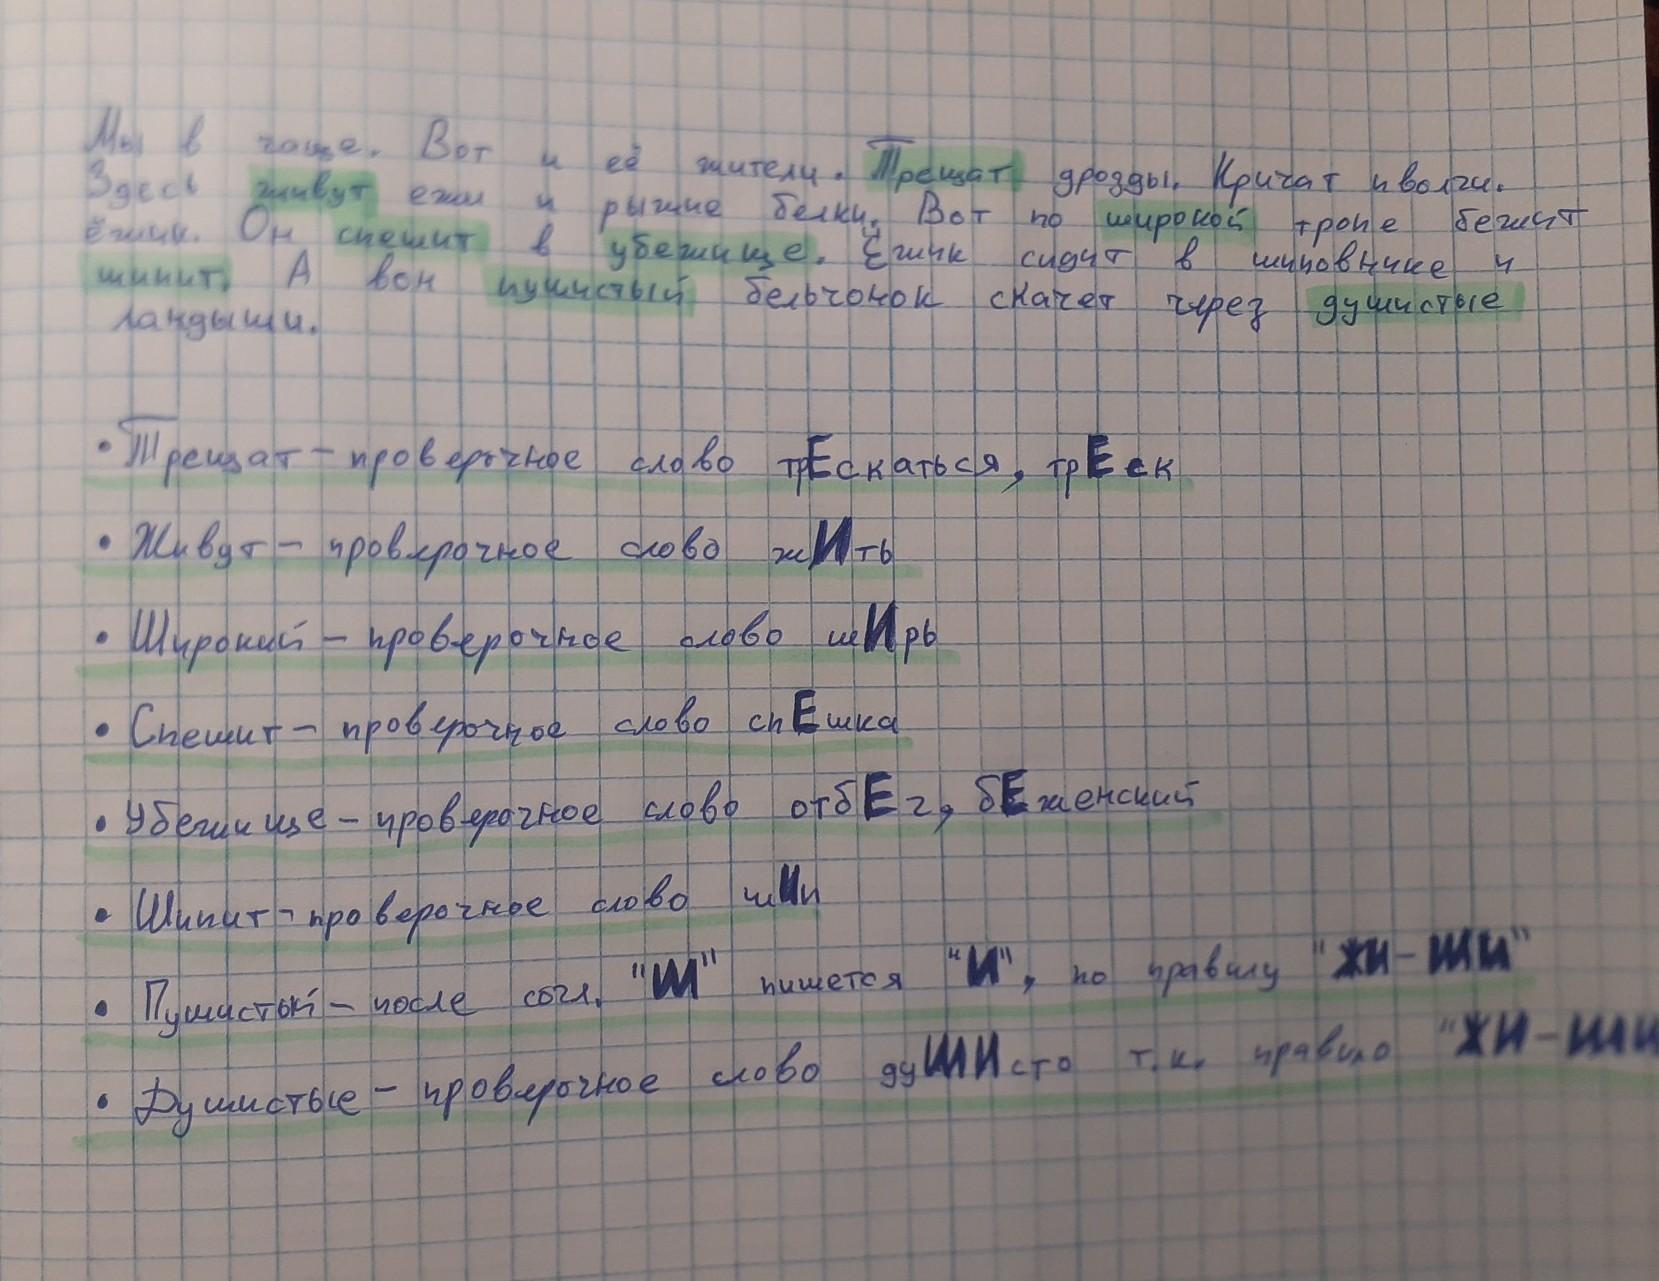 Мы в чаще. Вот и её жители. Трещат дрозды. Кричат иволги.
Здесь живут ежи и рыжие белки. Вот по широкой тропе бежит
ёжик. Он спешит в убежище. Ёжик сидит в шиповнике и
шипит. А вон пушистый бельчонок скачет через душистые
ландыши.
• Трещат – проверочное слово трЕскаться, трЕск
• Живут – проверочное слово жИть
• Широкий – проверочное слово шИрь
• Спешит – проверочное слово спЕшка
• Убежище – проверочное слово отбЕг, бЕженский
• Шипит – проверочное слово шИп
• Пушистый – после согл. "Ш" пишется "И", по правилу "ЖИ-ШИ"
• Душистые – проверочное слово дуШИсто т.к. правило "ЖИ-ШИ